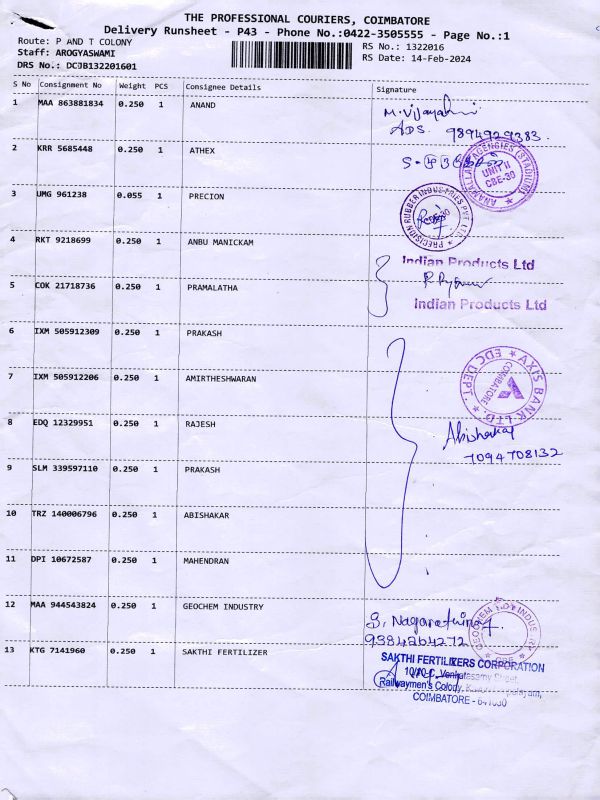 THE PROFESSIONAL COURIERS, COIMBATORE
Delivery Runsheet - P43 - Phone No.:0422-3505555 - Page No.:1
Route: P AND T COLONY
RS No.: 1322016
Staff: AROGYASWAMI
RS Date: 14-Feb-2024
DRS No.: DCJB132201601
S No Consignment No Weight PCS Consignee Details Signature
1 MAA 863881834 0.250 1 ANAND
M. Vijayalaxmi
ADS. 9894929383.
2 KRR 5685448 0.250 1 ATHEX
ANAMALLAIS AGENCIES (STADIUM)
UNIT II
CBE-30
3 UMG 961238 0.055 1 PRECION
PRECISION RUBBER INDUSTRIES PVT. LTD.
4 RKT 9218699 0.250 1 ANBU MANICKAM
Indian Products Ltd
5 COK 21718736 0.250 1 PRAMALATHA
Indian Products Ltd
6 IXM 505912309 0.250 1 PRAKASH
7 IXM 505912206 0.250 1 AMIRTHESHWARAN
AXIS BANK LTD
EDC DEPT.
COIMBATORE
8 EDQ 12329951 0.250 1 RAJESH
Abishakar
7094708132
9 SLM 339597110 0.250 1 PRAKASH
10 TRZ 140006796 0.250 1 ABISHAKAR
11 DPI 10672587 0.250 1 MAHENDRAN
12 MAA 944543824 0.250 1 GEOCHEM INDUSTRY
S. Nagarathinam
9384264272
GEOCHEM INDUSTRY
13 KTG 7141960 0.250 1 SAKTHI FERTILIZER
SAKTHI FERTILIZERS CORPORATION
Venkatasamy Street,
Railwaymen's Colony,
COIMBATORE - 641030